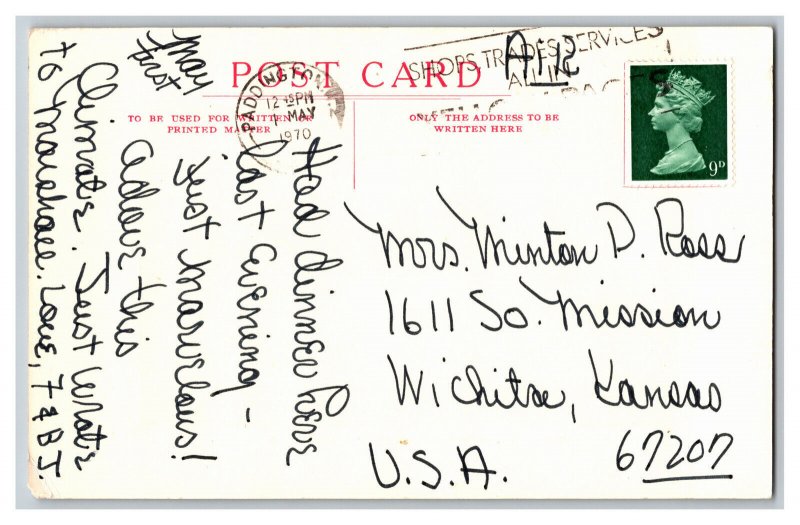 POST CARD
TO BE USED FOR WRITTEN OR
PRINTED MATTER
ONLY THE ADDRESS TO BE
WRITTEN HERE
PADDINGTON
12 45 PM
1 MAY
1970
SHOPS TRADES SERVICES
ALL IN
9D
Air
May
First
Had dinner here
last Evening -
Just marvelous!
Adore this
Climate. Just wrote
to Marshall. Love, F & B J.
Mrs. Minton P. Ross
1611 So. Mission
Wichita, Kansas
U.S.A. 67207